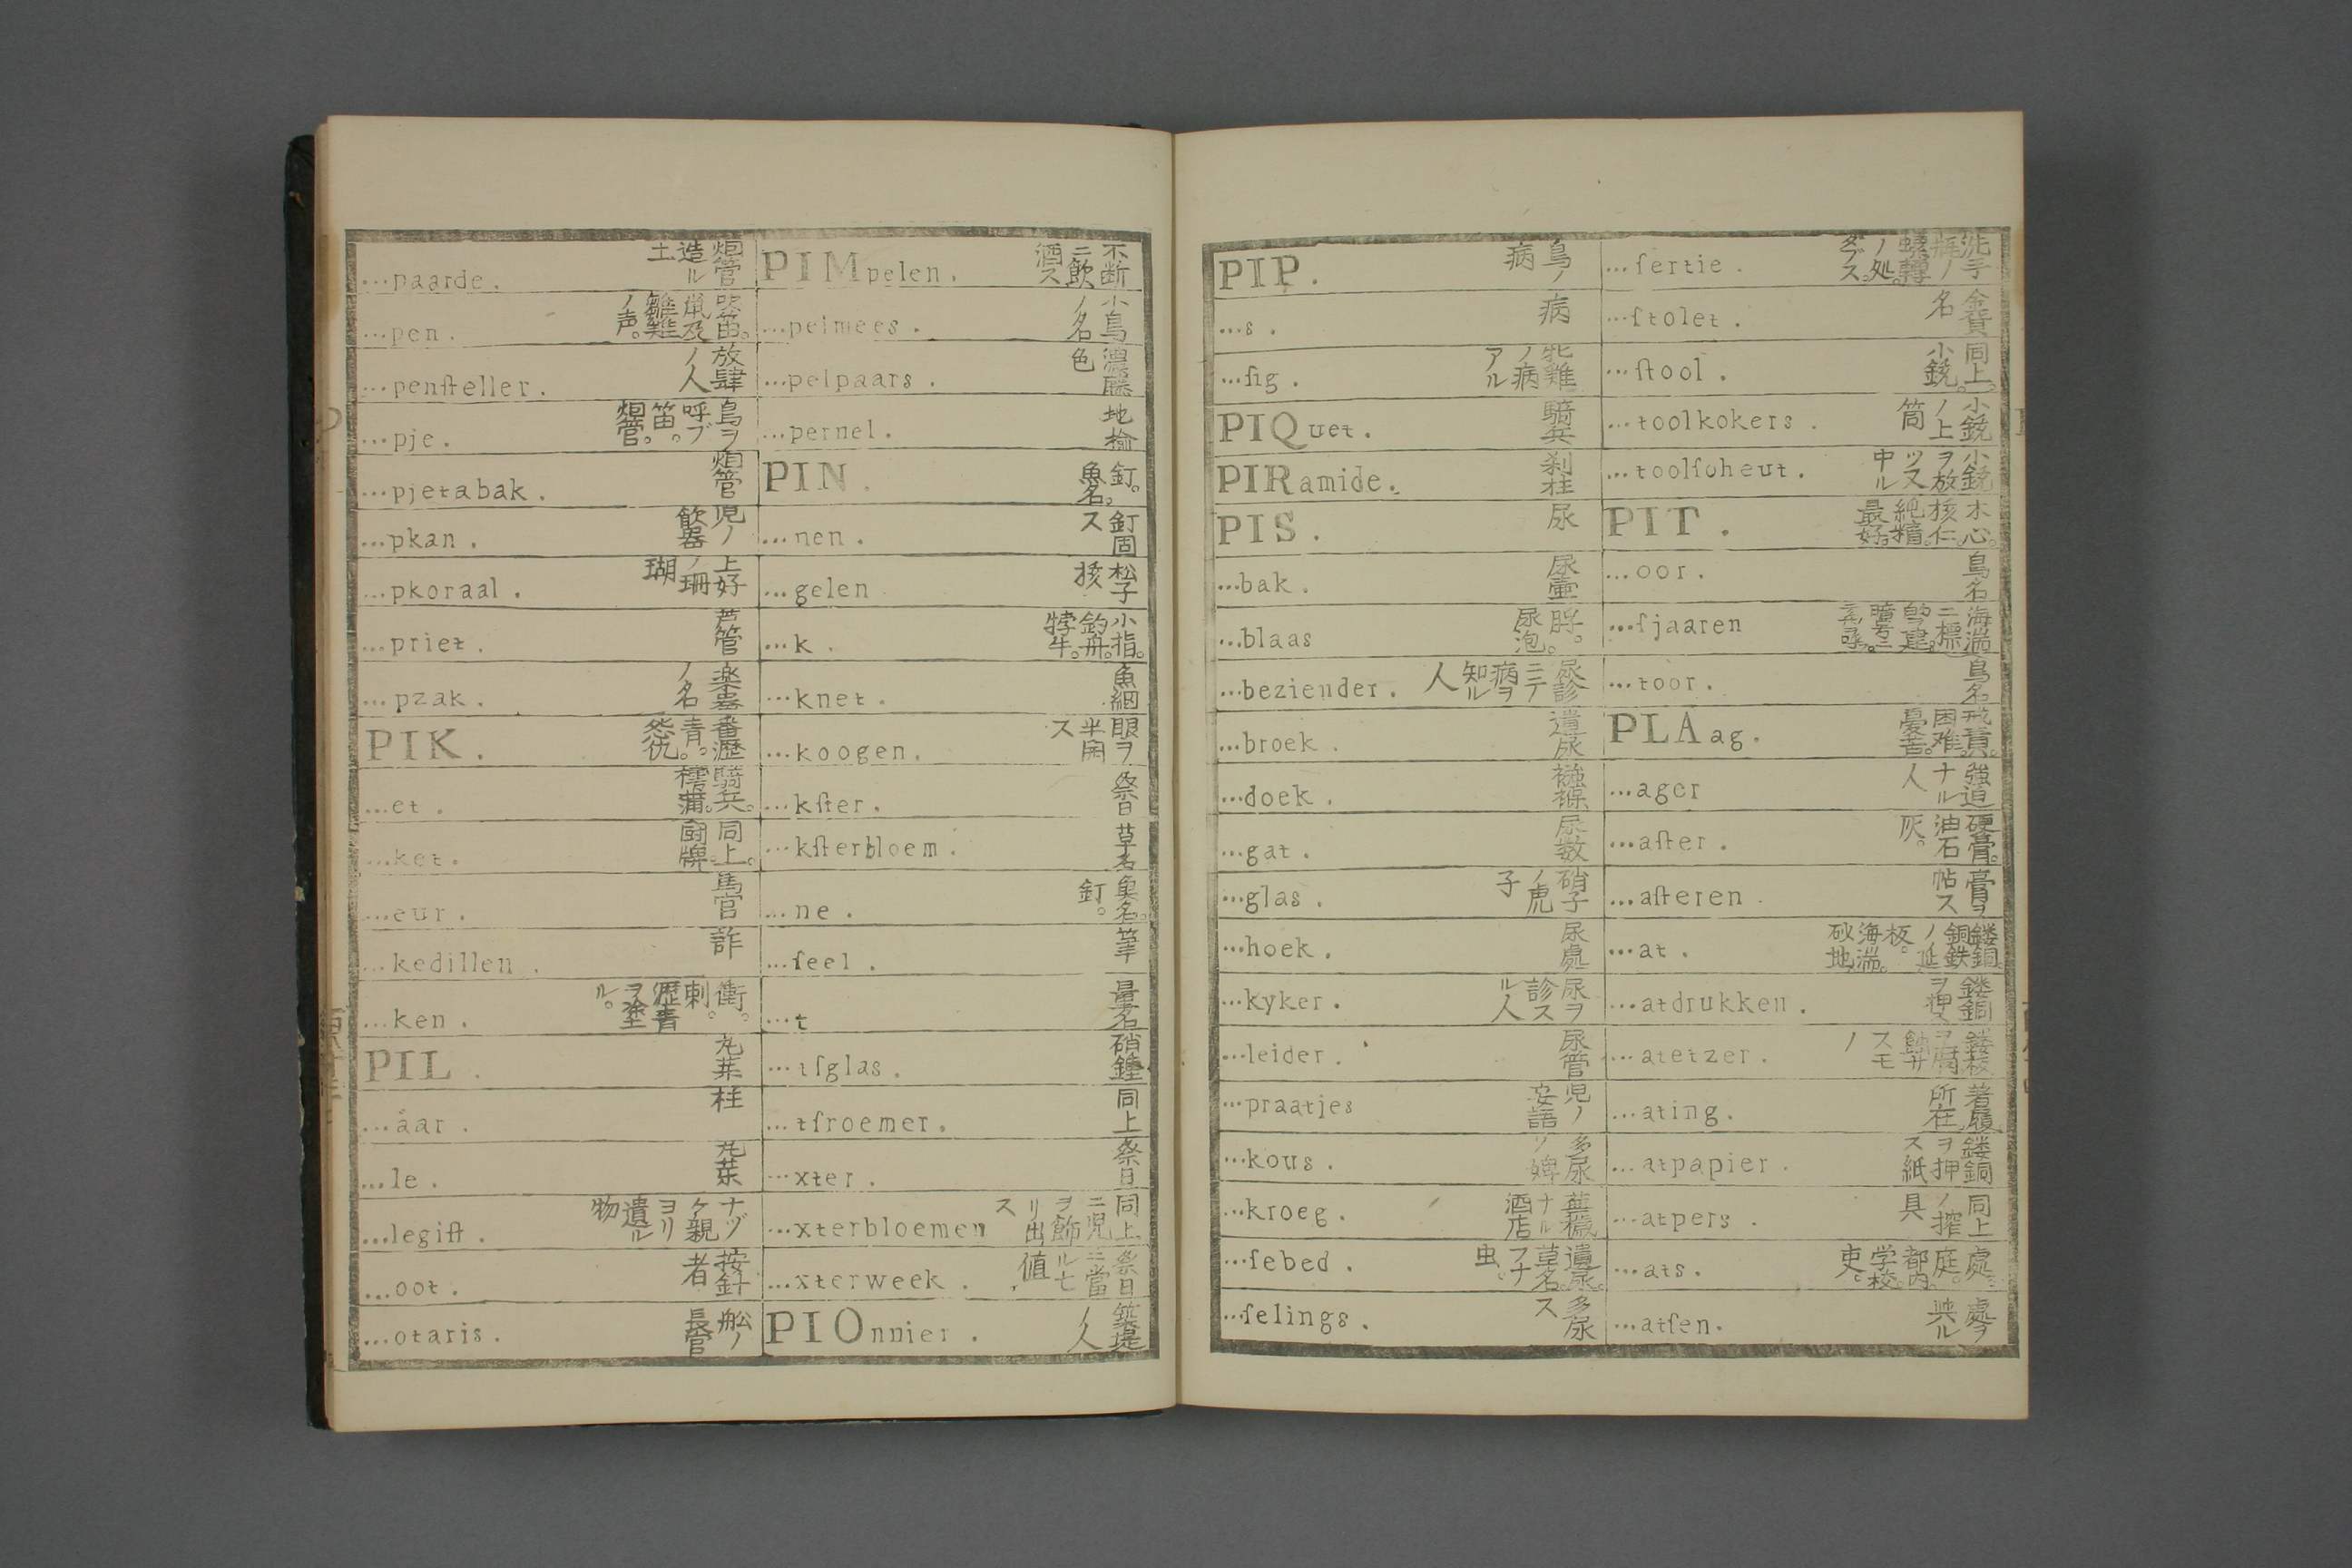 ...paarde. 烟管造ル土
...pen. ノ声。
...penſteller. 放肆ノ人
...pje. 鳥ヲ呼ブ笛。烟管。
...pjetabak. 烟管
...pkan. 児ノ飲器
...pkoraal. 上好ノ珊瑚
...priet. 芦管
...pzak. 楽器ノ名
PIK. 番瀝青。怨仇。
...et. 騎兵。樗蒲。
...ket. 同上。闘牌
...eur. 馬官
...kedillen. 詐
...ken. 衝。刺。瀝青ヲ塗ル。
PIL. 丸薬
...äar. 柱
...le. 丸薬
...legift. ナヅケ親ヨリ遺ル物
...oot. 按針者
...otaris. 舩ノ長官
PIMpelen. 不断ニ飲酒ス
...pelmees. 小鳥ノ名
...pelpaars. 色
...pernel. 地楡
PIN. 釘。魚名。
...nen. 釘固ス
...gelen 松子
...k. 小指。釣舟。牸牛。
...knet. 魚網
...koogen. 眼ヲ半開ス
...kſter. 祭日
...kſterbloem. 草名
...ne. 魚名。釘。
...ſeel. 筆
...t 量名
...tſglas. 硝鍾
...tſroemer. 同上
...xter. 祭日
...xterbloemen 同上ニ児ヲ飾リ出ス
...xterweek. 祭日ニ當ル七値
PIOnnier. 築堤ノ人
PIP. 鳥ノ病
...s. 病
...ſig. 牝雞ノ病アル
PIQuet. 騎兵
PIRamide. 刹柱
PIS. 尿
...bak. 尿壷
...blaas 脬。尿泡。
...beziender. 尿診ニテ病ヲ知ル人
...broek. 遺尿
...doek. 襁褓
...gat. 尿数
...glas. 硝子ノ虎子
...hoek. 尿處
...kyker. 尿ヲ診スル人
...leider. 尿管
...praatjes 児ノ妄語
...kous. 多尿ノ婢
...kroeg. 蕪穢ナル酒店
...ſebed. 遺尿。草名。フナ虫。
...ſelings. 多尿ス
...ſertie. 洗手瓶ノ螺轉ノ処。
...ſtolet. 金貨名
...ſtool. 同上。小銃。
...toolkokers. 小銃ノ上筒
...toolſoheut. 小銃ヲ放ツ又中ル
PIT. 木心。核仁。純精。最好。
...oor. 鳥名
...ſjaaren
...toor. 鳥名
PLAag. 戒責。困难。憂苦。
...ager 強迫ナル人
...aſter. 硬膏。油石灰。
...aſteren. 膏ヲ帖ス
...at. 鏤銅。銅鉄ノ延板。海湍。砂地
...atdrukken. 鏤銅ヲ押ス
...atetzer.
...ating. 着履。所在
...atpapier. 鏤銅ヲ押ス紙
...atpers. 同上ノ搾具
...ats. 處。庭。都内。学校。吏。
...atſen. 處ヲ